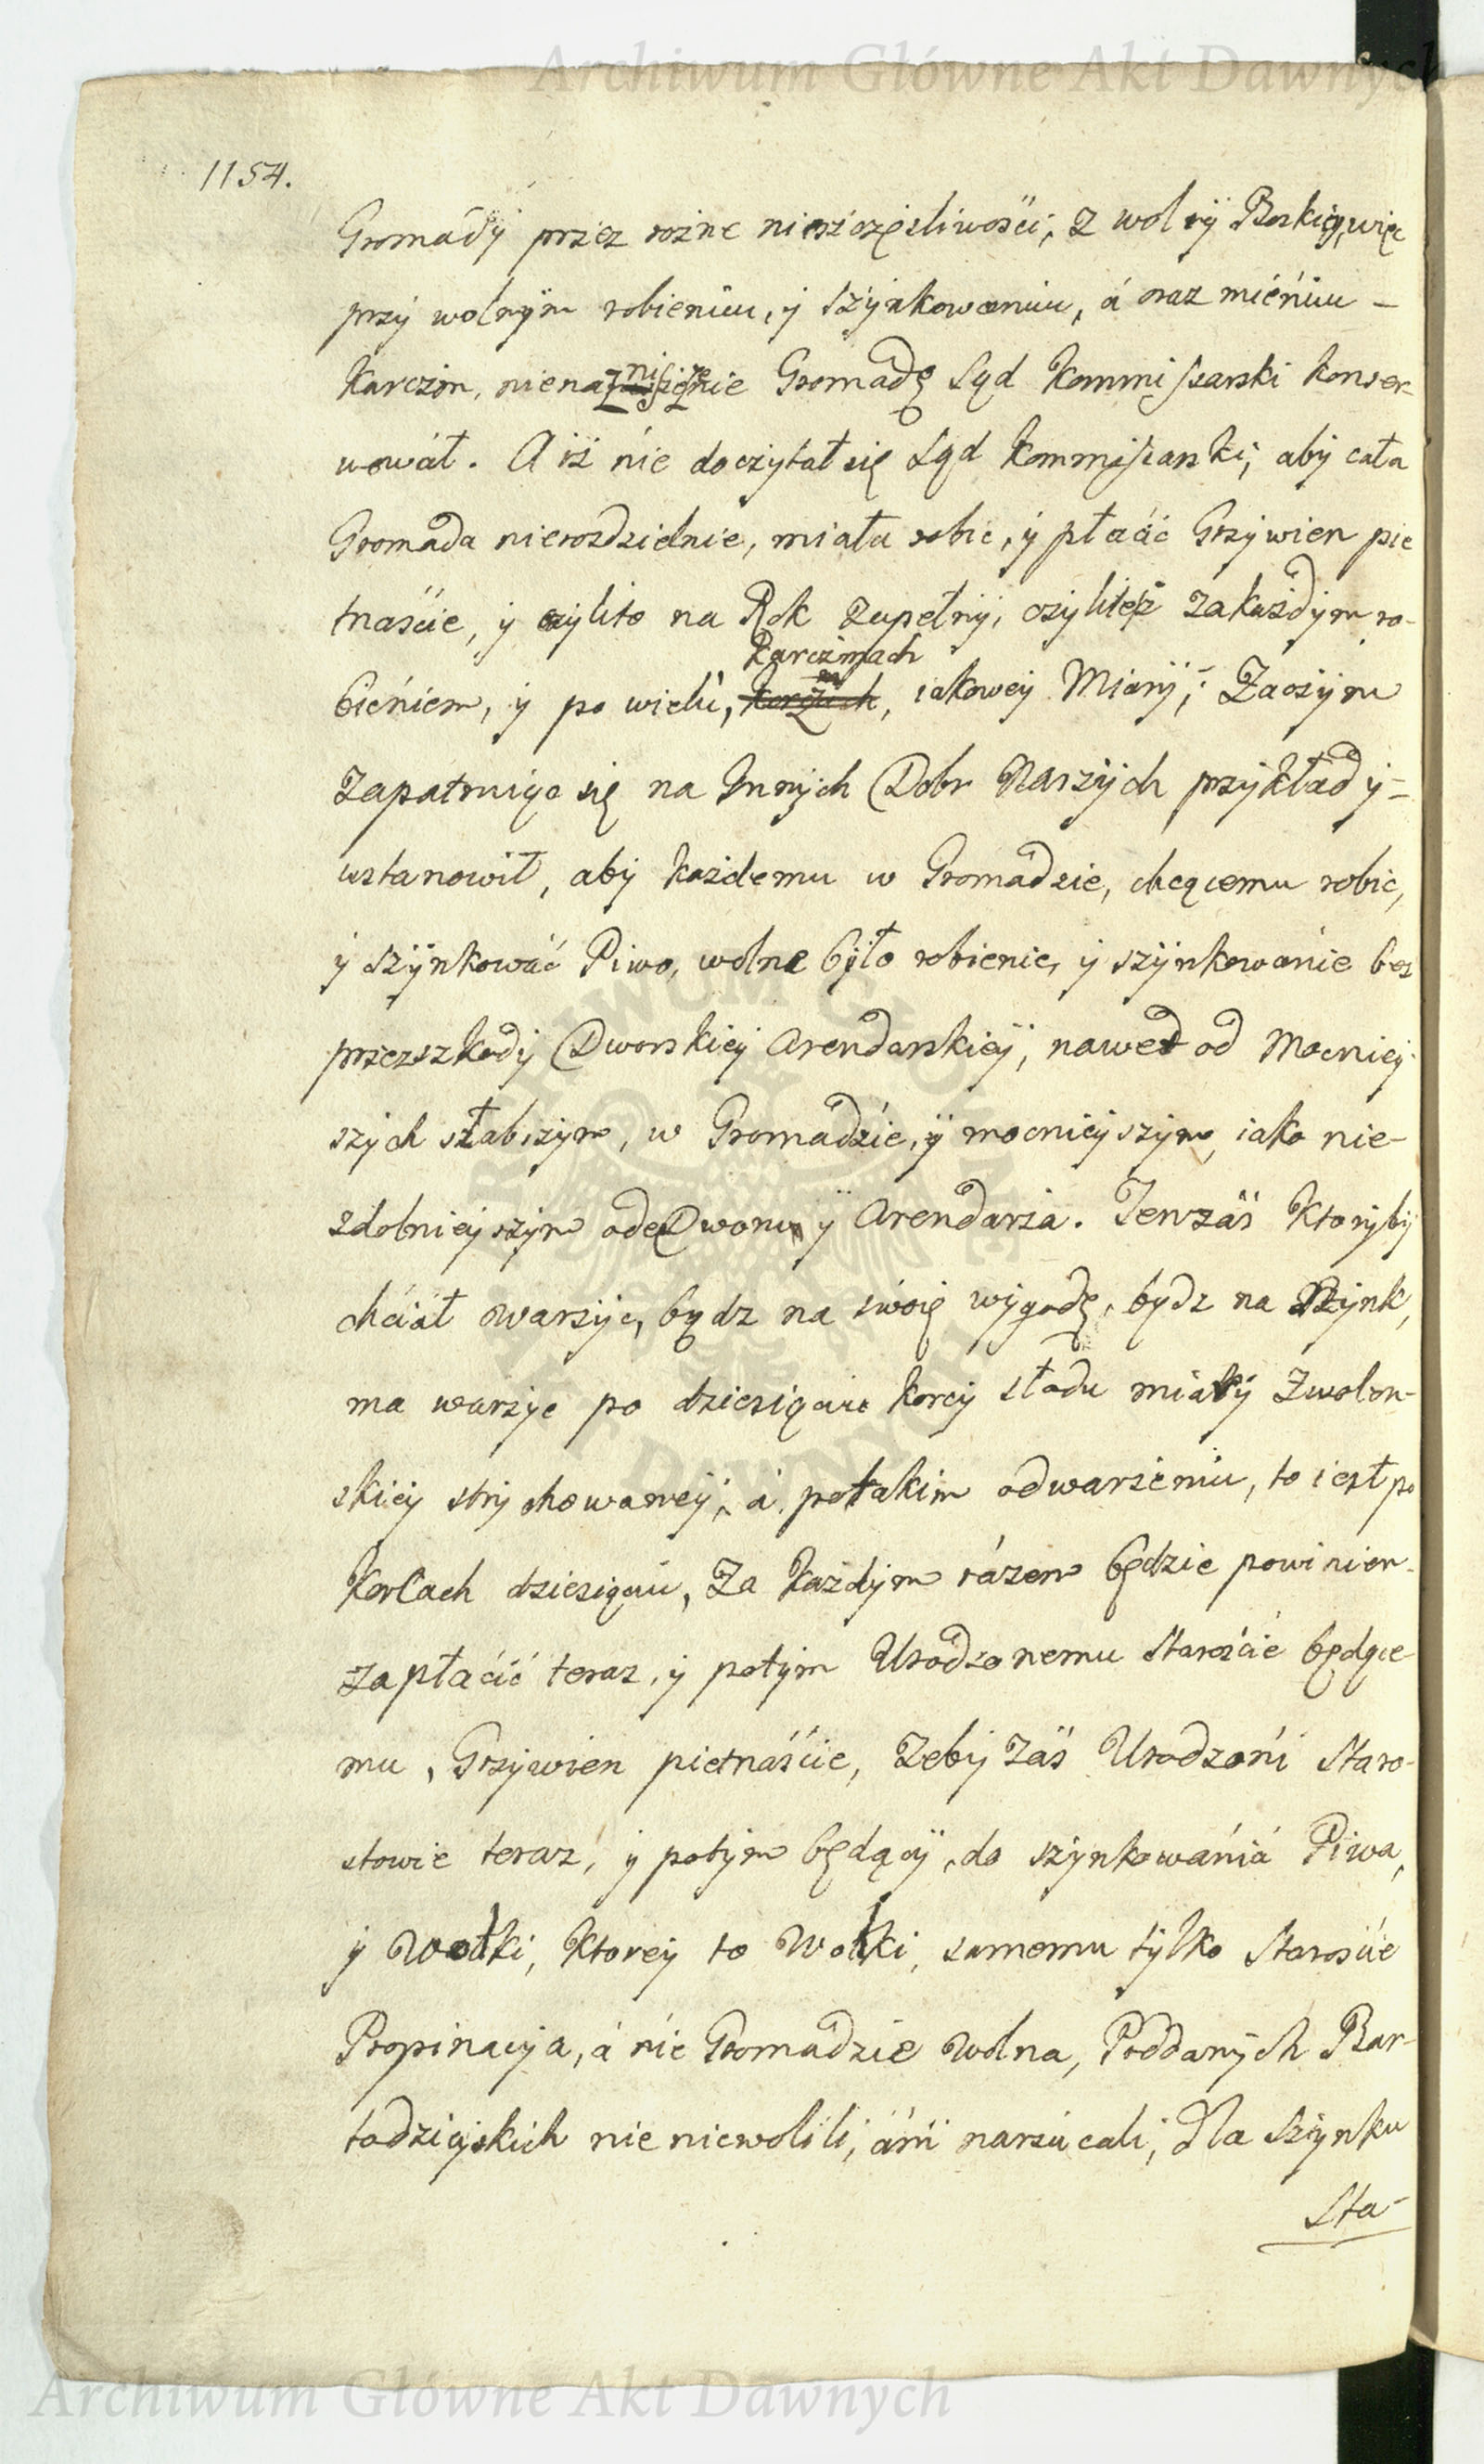 Archiwum Główne Akt Dawnych
1154.
Gromady przez rozne nieszczęsliwości, z woli Boskiey, więc
przy wolnym robieniu, y szynkowaniu, á oraz mieniu –
Karczm, Gromadę Sąd Kommissarski konser-
wował. A iż nie doczytał się Sąd Kommissarski, aby cała
Gromada nierozdzielnie, miała robic, y płacić Grzywien pie
tnaście, y czylito na Rok zupełny, czyliteż za każdym ro-
Karczmach
bieniem, y po wielu, iakowey Miary; Zaczym
Zapatruiąc się na Innych Dobr Naszych przykłady –
ustanowił, aby każdemu w Gromadzie, chcącemu robic,
y szynkować Piwo, wolne było robienie, y szynkowanie bez
przeszkody Dworskiey Arendarskiey, nawet od Mocniey
szych słabszym, w Gromadzie, y mocnieyszym, iako nie-
zdolnieyszym ode Dworu y Arendarza. Tenzaś ktoryby
chciał warzyc, bądz na swoię wygodę, bądz na Szynk,
ma warzyc po dziesiąciu korcy słodu miary Zwolen-
skiey strychowaney, á po takim odwarzeniu, to iest po
Korcach dziesiąciu, Za każdym rázem będzie powinien
zapłacić teraz, y potym Urodzonemu Staroście będące-
mu, Grzywien pietnáście, Zeby záś Urodzoni Staro-
stowie teraz, y potym będący, do szynkowánia Piwa,
y Wodki, ktorey to Wodki, samemu tylko Staroście
Propinacya, á nie Gromadzie wolna, Poddanych Bar-
todzieyskich nie niewolili, áni narzucali, dla Szynku
Sta-
Archiwum Główne Akt Dawnych